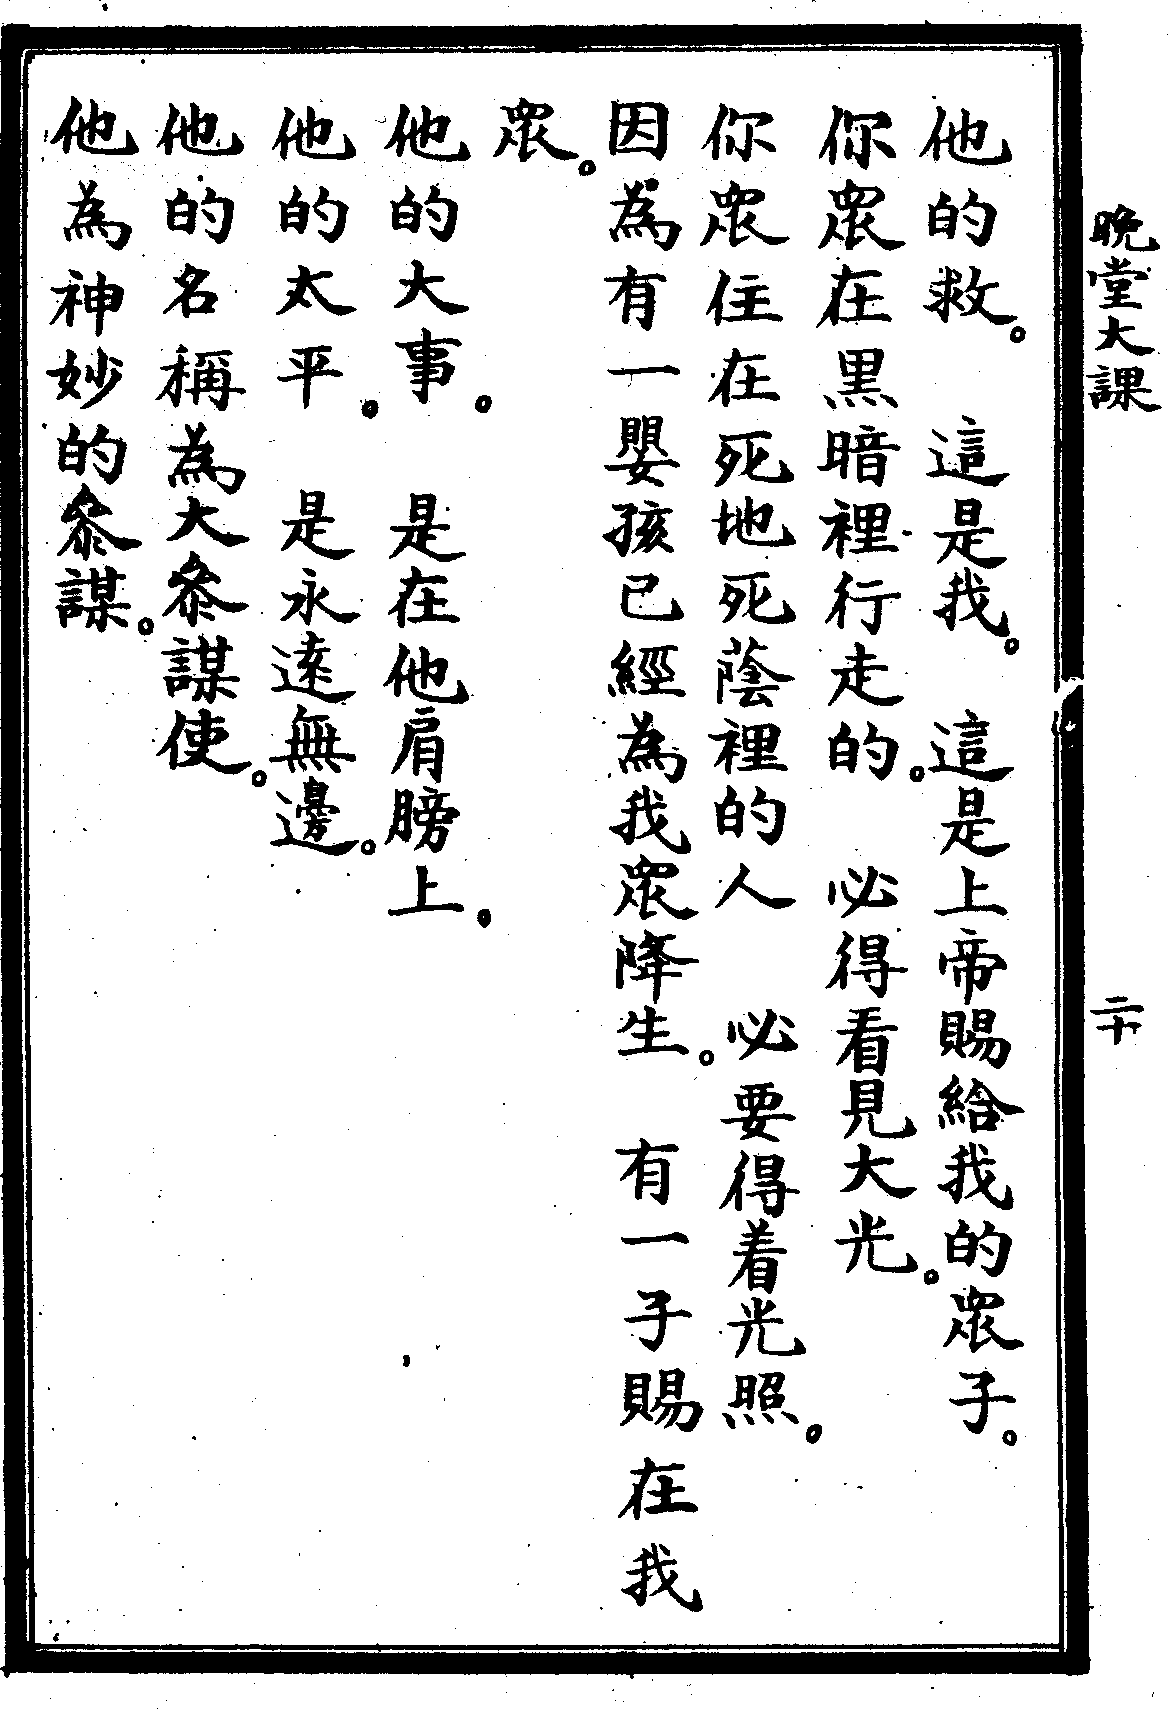 晚堂大課 二十
他的救。 這是我。 這是上帝賜給我的眾子。
你眾在黑暗裡行走的。 必得看見大光。
你眾住在死地死蔭裡的人 必要得着光照。
因為有一嬰孩已經為我眾降生。 有一子賜在我
眾。
他的大事。 是在他肩膀上。
他的太平。 是永遠無邊。
他的名稱為大叅謀使。
他為神妙的叅謀。